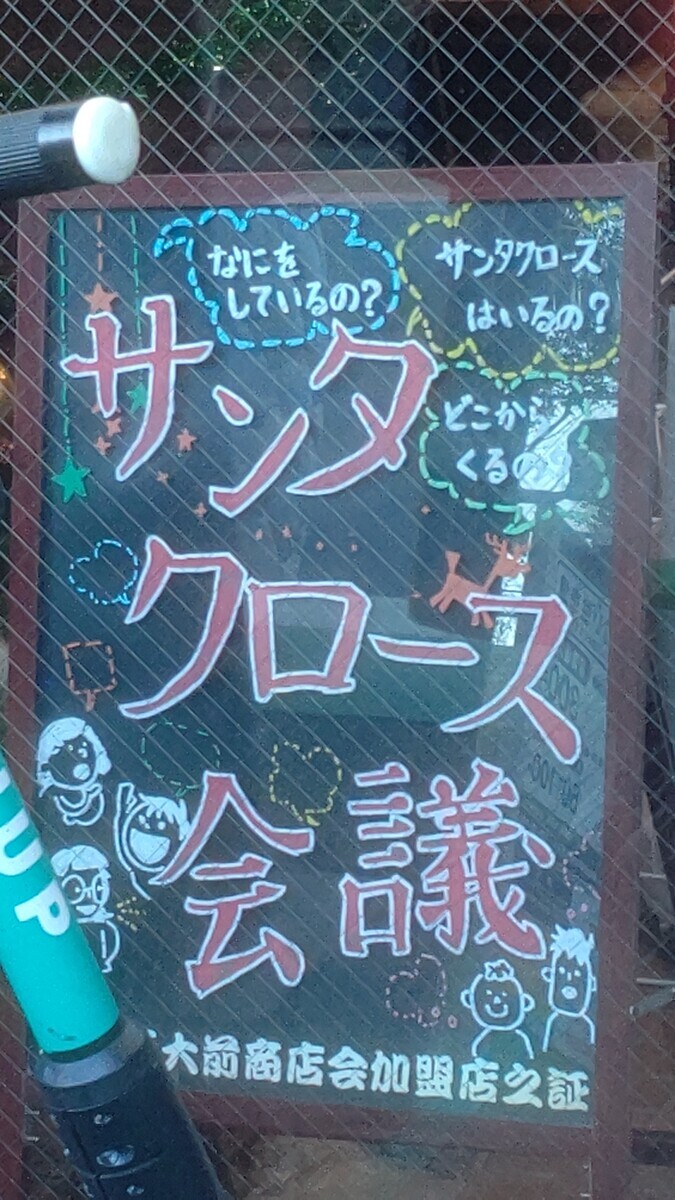 なにを
しているの?
サンタクロース
はいるの?
どこから
くるの
サンタ
クロース
会議
大前商店会加盟店之証
UP